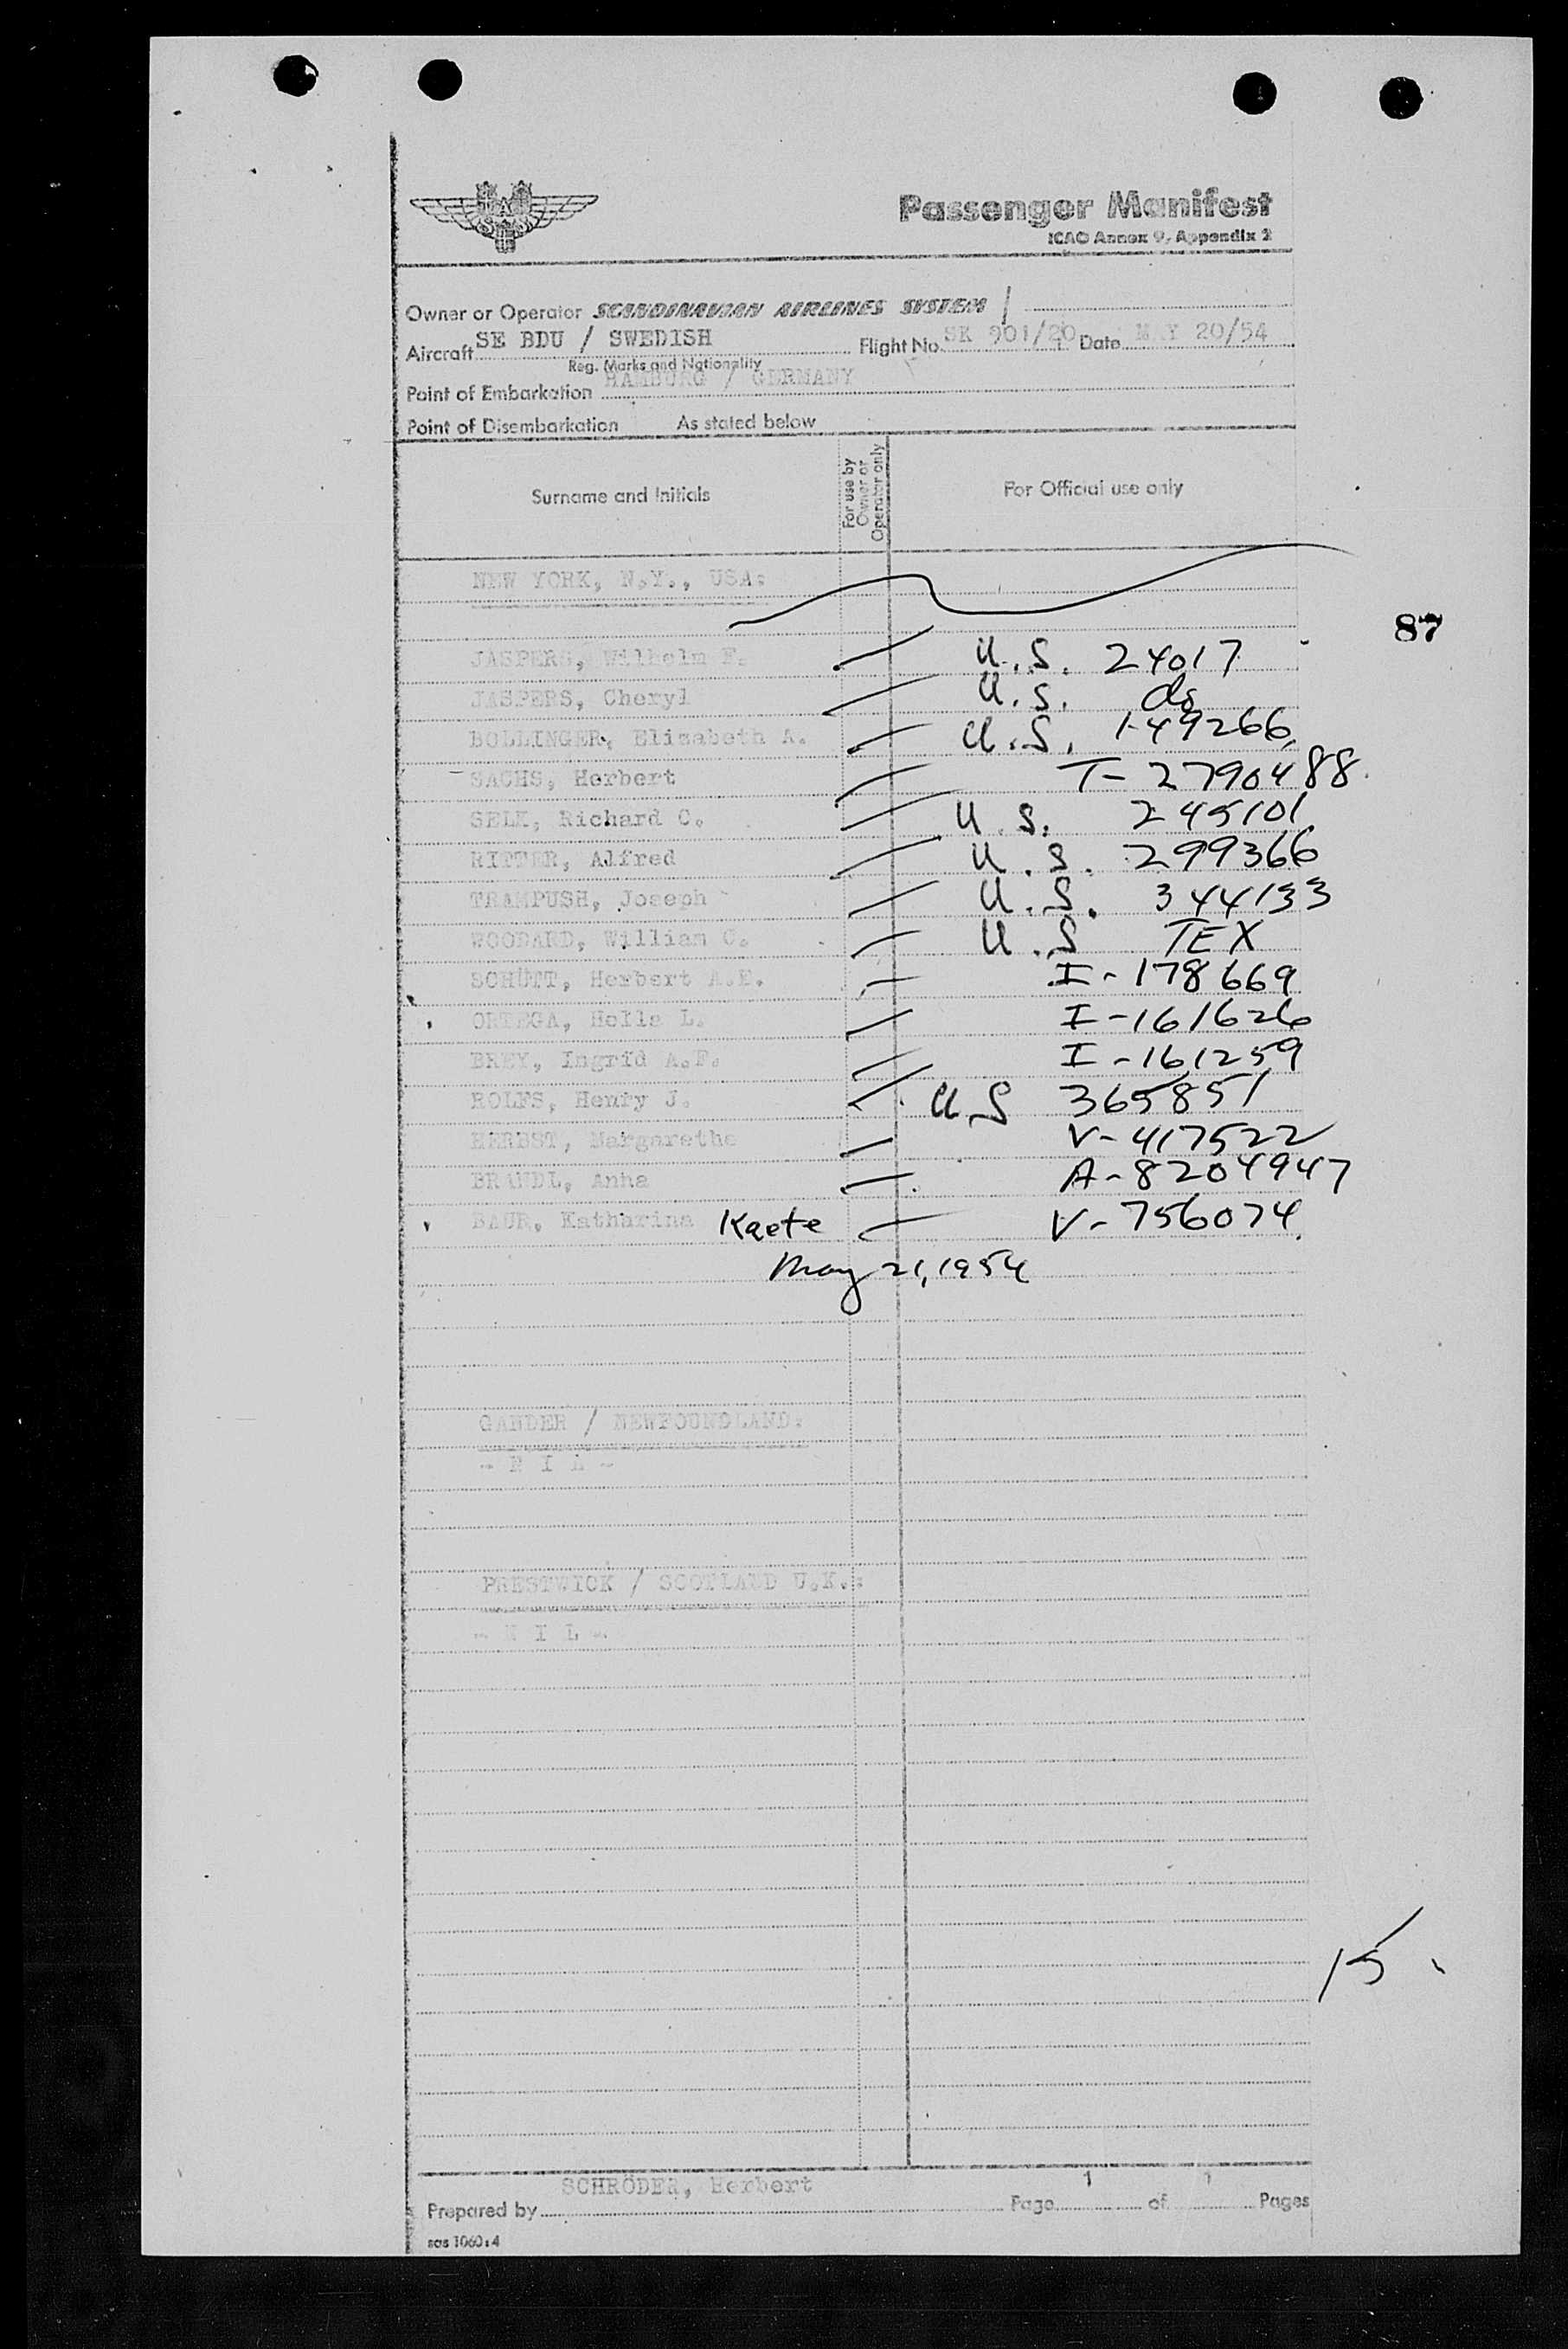 SAS
Passenger Manifest
ICAO Annex 9, Appendix 2
Owner or Operator SCANDINAVIAN AIRLINES SYSTEM /
Aircraft SE BDU / SWEDISH Flight No. SK 901/20 Date MAY 20/54
Reg. Marks and Nationality
Point of Embarkation HAMBURG / GERMANY
Point of Disembarkation As stated below
Surname and Initials For use by Owner or Operator only For Official use only
NEW YORK, N.Y., USA:
87
JASPERS, Wilhelm F. U.S. 24017
JASPERS, Cheryl U.S. do
BOLLINGER, Elisabeth A. U.S. 149266
SACHS, Herbert T- 2790488
SELK, Richard C. U.S. 245101
RITTER, Alfred U.S. 299366
TRAMPUSH, Joseph U.S. 344133
WOODARD, William C. U.S TEX
SCHÜTT, Herbert A.E. I-178669
ORTEGA, Helle L. I-161626
BREY, Ingrid A.F. I-161259
ROLFS, Henry J. US 365851
HERBST, Margarethe V-417522
BRANDL, Anna A-8204947
BAUR, Katharina Kaete V-756074
May 21, 1954
GANDER / NEWFOUNDLAND:
- N I L -
PRESTWICK / SCOTLAND U.K.:
- N I L -
15
Prepared by SCHRÖDER, Herbert Page 1 of 1 Pages
sas 1060:4